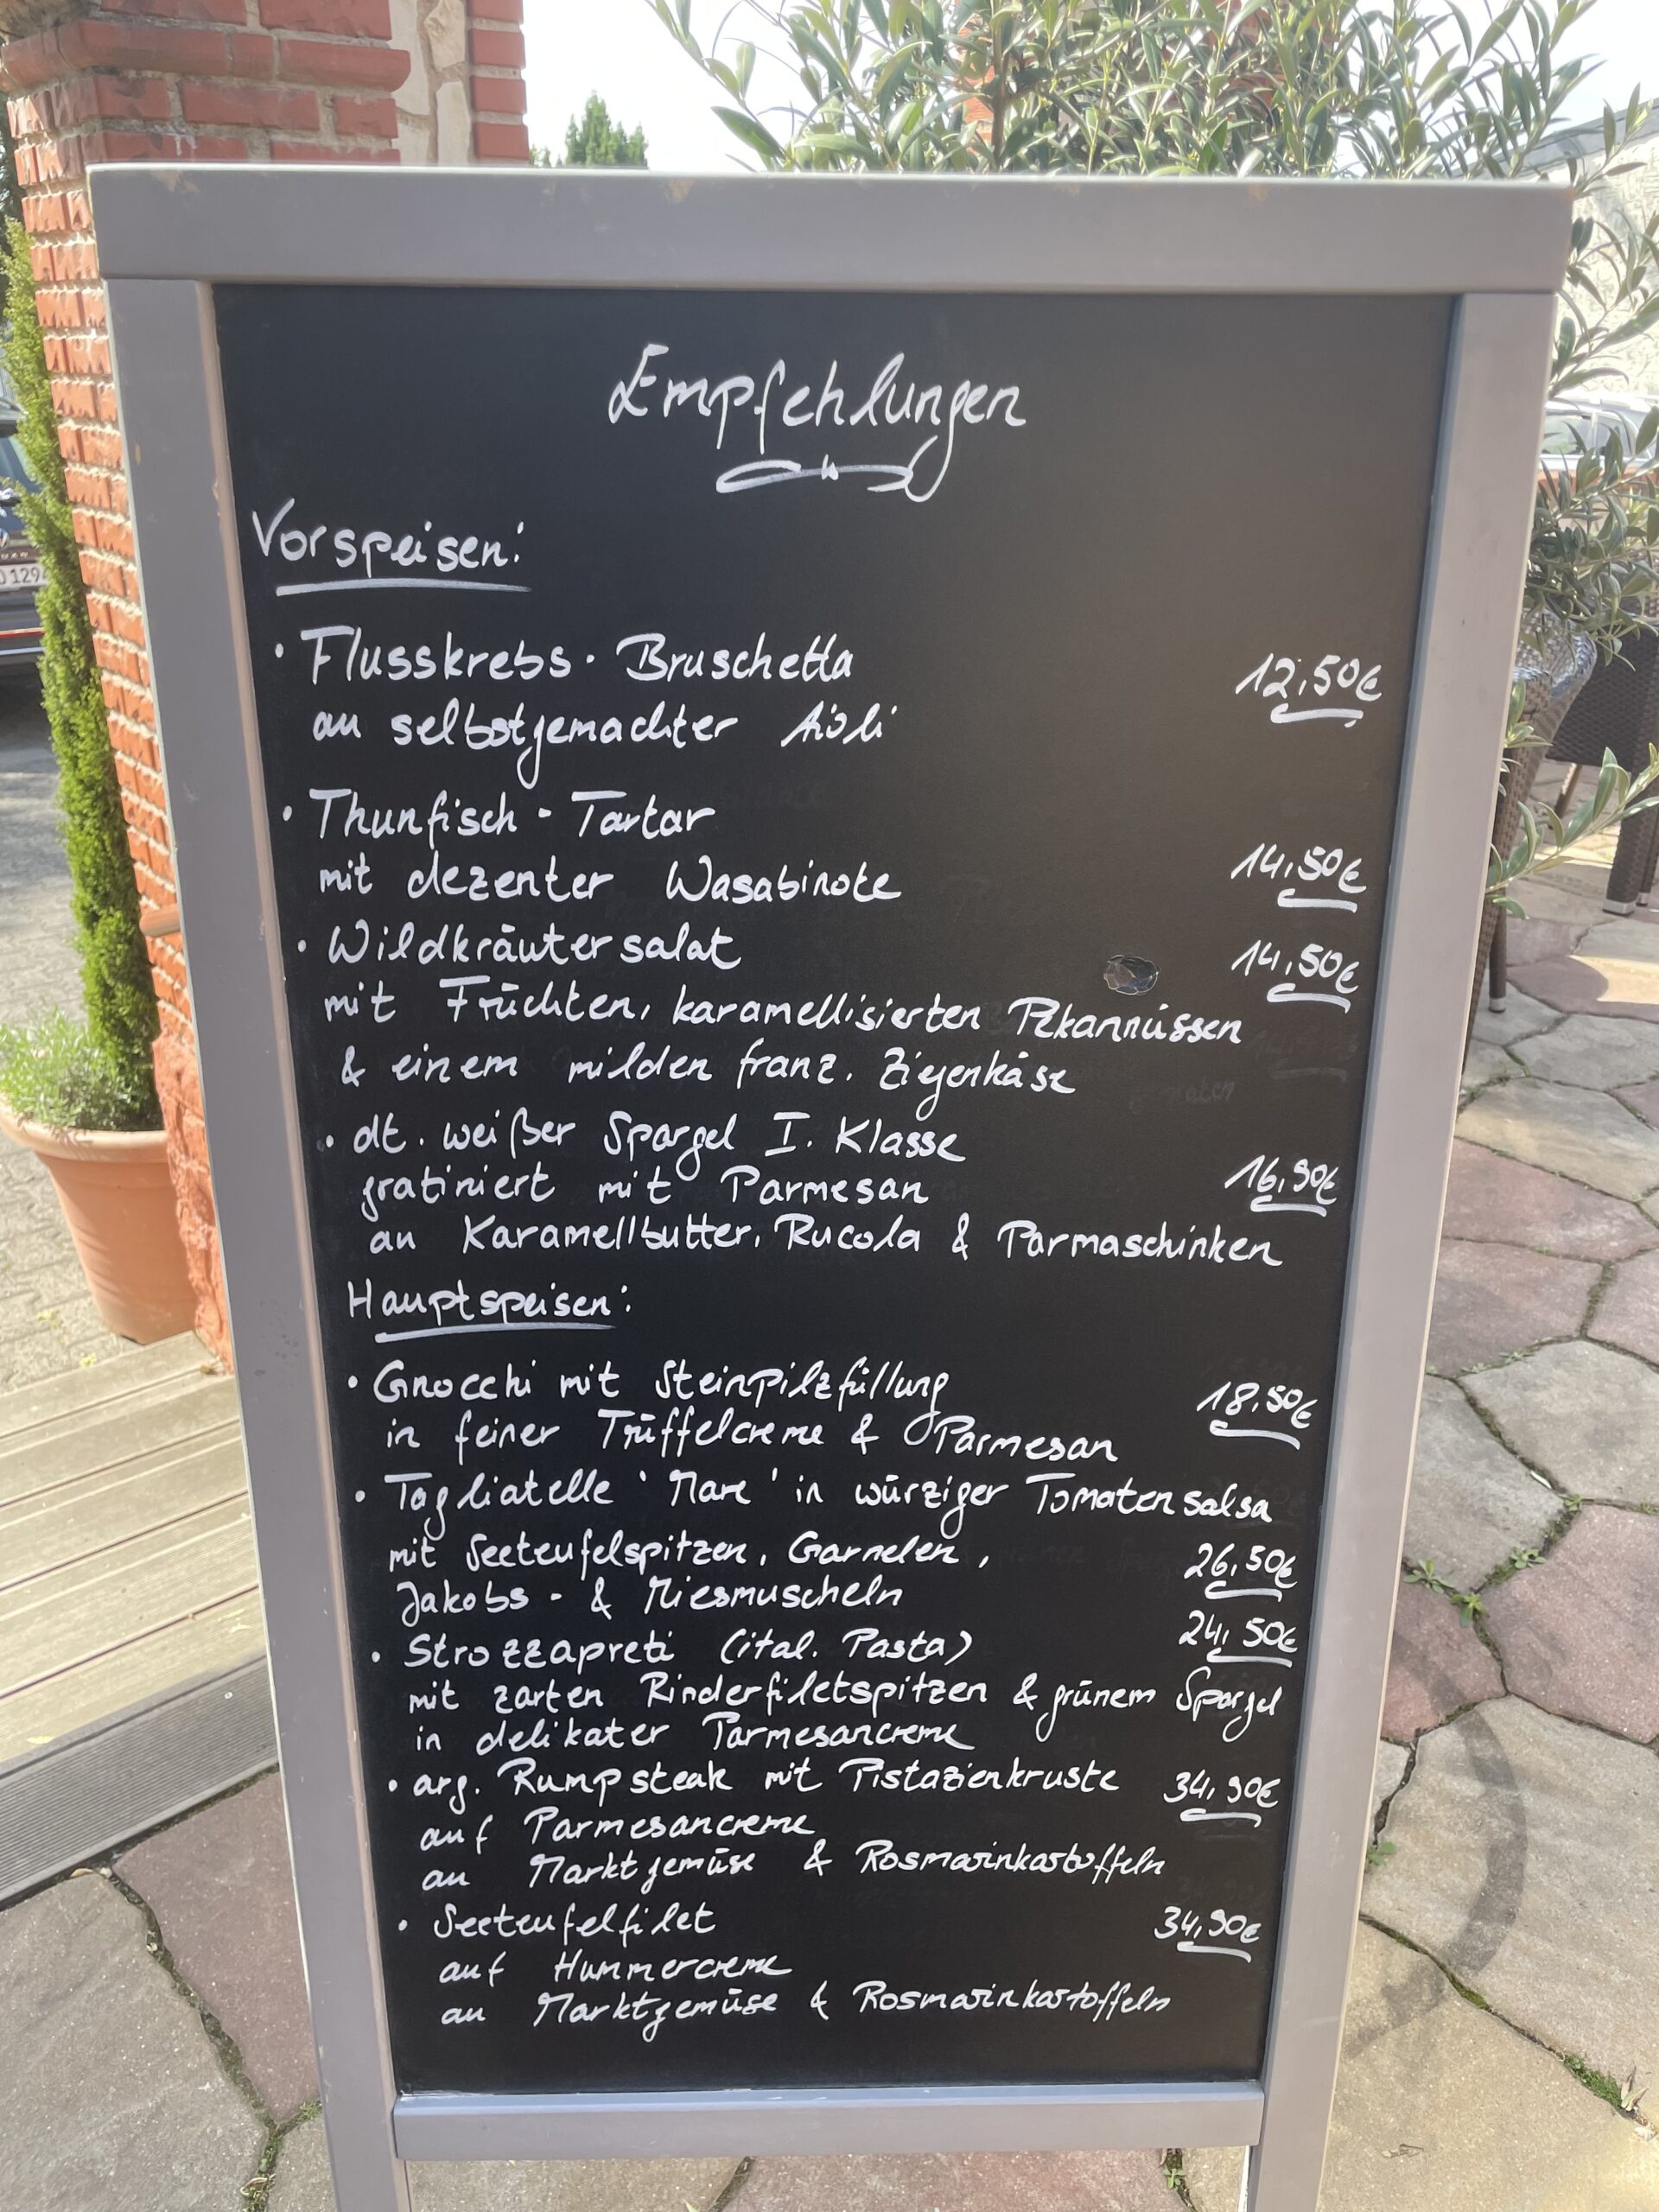 Empfehlungen
Vorspeisen:
• Flusskrebs - Bruschetta
an selbstgemachter Aioli 12,50€
• Thunfisch - Tartar
mit dezenter Wasabinote 14,50€
• Wildkräutersalat 14,50€
mit Früchten, karamellisierten Pekannüssen
& einem milden franz. Ziegenkäse
• dt. weißer Spargel I. Klasse
gratiniert mit Parmesan 16,90€
an Karamellbutter, Rucola & Parmaschinken
Hauptspeisen:
• Gnocchi mit Steinpilzfüllung 18,50€
in feiner Trüffelcreme & Parmesan
• Tagliatelle 'Mare' in würziger Tomatensalsa
mit Seeteufelspitzen, Garnelen, 26,50€
Jakobs- & Miesmuscheln
• Strozzapreti (ital. Pasta) 24,50€
mit zarten Rinderfiletspitzen & grünem Spargel
in delikater Parmesancreme
• arg. Rumpsteak mit Pistazienkruste 34,90€
auf Parmesancreme
an Marktgemüse & Rosmarinkartoffeln
• Seeteufelfilet 34,90€
auf Hummercreme
an Marktgemüse & Rosmarinkartoffeln